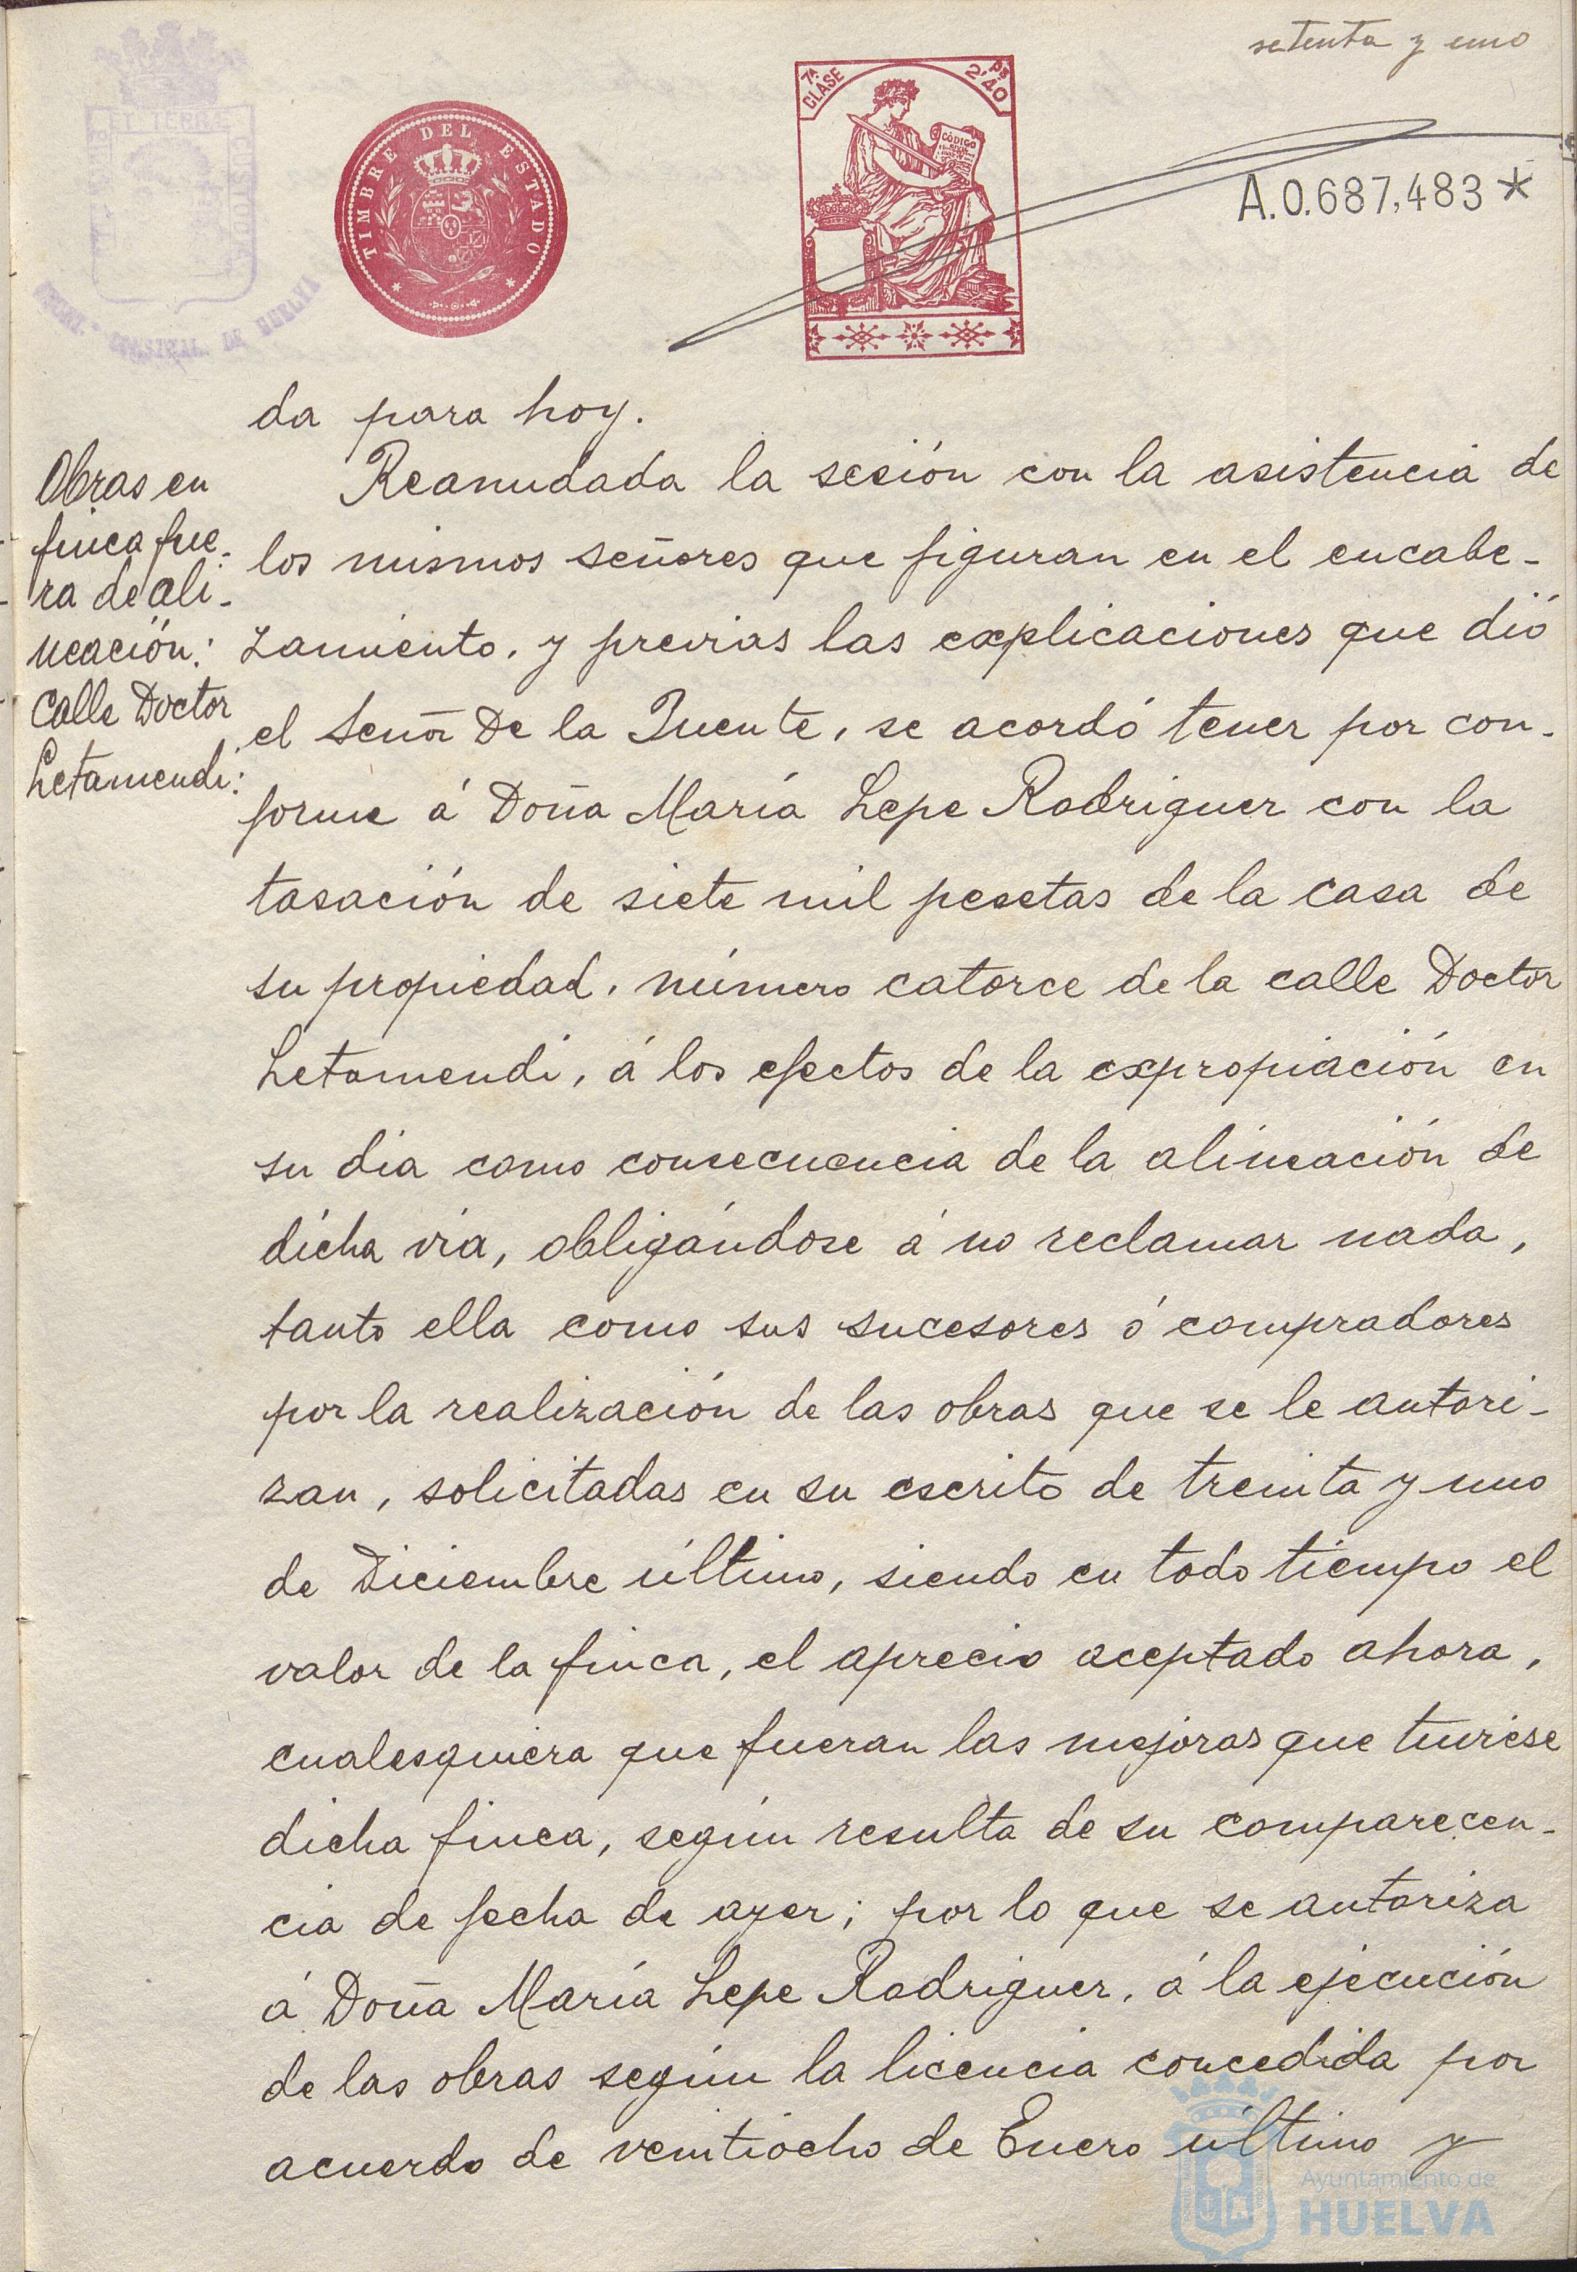 setenta y uno
TIMBRE DEL ESTADO
7ª CLASE
2'40 Ps
CÓDIGO
A.0.687,483*
da para hoy.
Obras en
finca fue-
ra de ali-
neación:
Calle Doctor
Letamendi:
Reanudada la sesión con la asistencia de
los mismos señores que figuran en el encabe-
zamiento, y previas las explicaciones que dió
el Señor De la Fuente, se acordó tener por con-
forme á Doña María Lepe Rodriguez con la
tasación de siete mil pesetas de la casa de
su propiedad, número catorce de la calle Doctor
Letamendi, á los efectos de la expropiación en
su dia como consecuencia de la alineación de
dicha vía, obligándose á no reclamar nada,
tanto ella como sus sucesores ó compradores
por la realización de las obras que se le autori-
zan, solicitadas en su escrito de treinta y uno
de Diciembre último, siendo en todo tiempo el
valor de la finca, el aprecio aceptado ahora,
cualesquiera que fueran las mejoras que tuviese
dicha finca, según resulta de su comparecen-
cia de fecha de ayer; por lo que se autoriza
á Doña María Lepe Rodriguez, á la ejecución
de las obras según la licencia concedida por
acuerdo de veintiocho de Enero último y
Ayuntamiento de
HUELVA